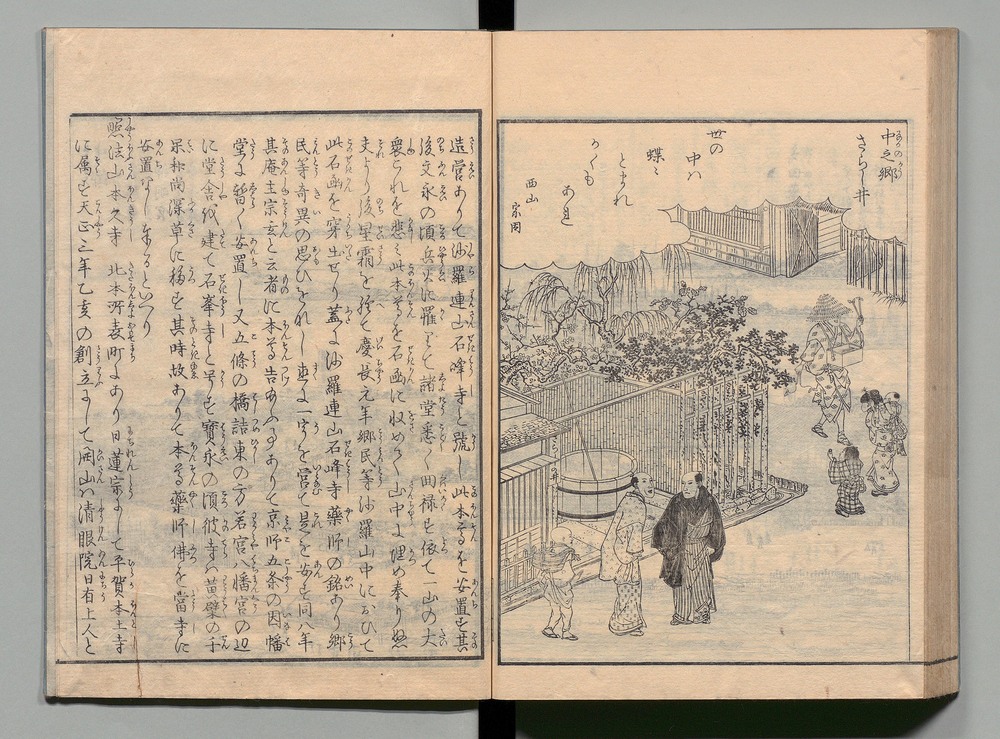 中之郷
さらし井
世の
中は
蝶々
とまれ
かくも
あれ
西山
宗因
さらしの井
造営ありて沙羅連山石峰寺と號し此本尊を安置す其
後文永の頃兵火に罹りて諸堂悉く回禄す依て一山の大
衆これを悲み此本尊を石函に収めて山中に埋め奉りぬ
夫より後星霜を経て慶長元年郷民等沙羅山中において
此石函を穿出せり蓋に沙羅連山石峰寺薬師の銘あり郷
民等奇異の思ひをなし
一宇を営て是を安す同八年
其庵主宗玄と云者に本尊告あふ事ありて京師五条の因幡
堂に暫く安置し又五條の橋詰東の方若宮八幡宮の辺
に堂舎を建て石峯寺と号す寶永の頃彼寺の黄檗の千
呆和尚深草に移す其時故ありて本尊薬師佛を當寺に
安置なし奉るといへり
照法山本久寺 北本所表町にあり日蓮宗にして平賀本土寺
に属す天正三年乙亥の創立にして開山は清眼院日有上人と